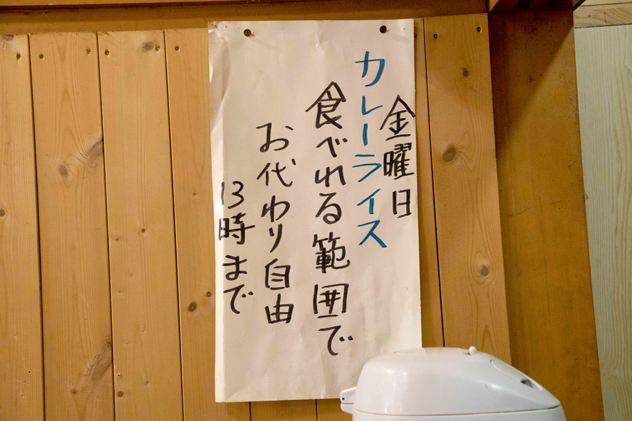 金曜日
カレーライス
食べれる範囲で
お代わり自由
13時まで